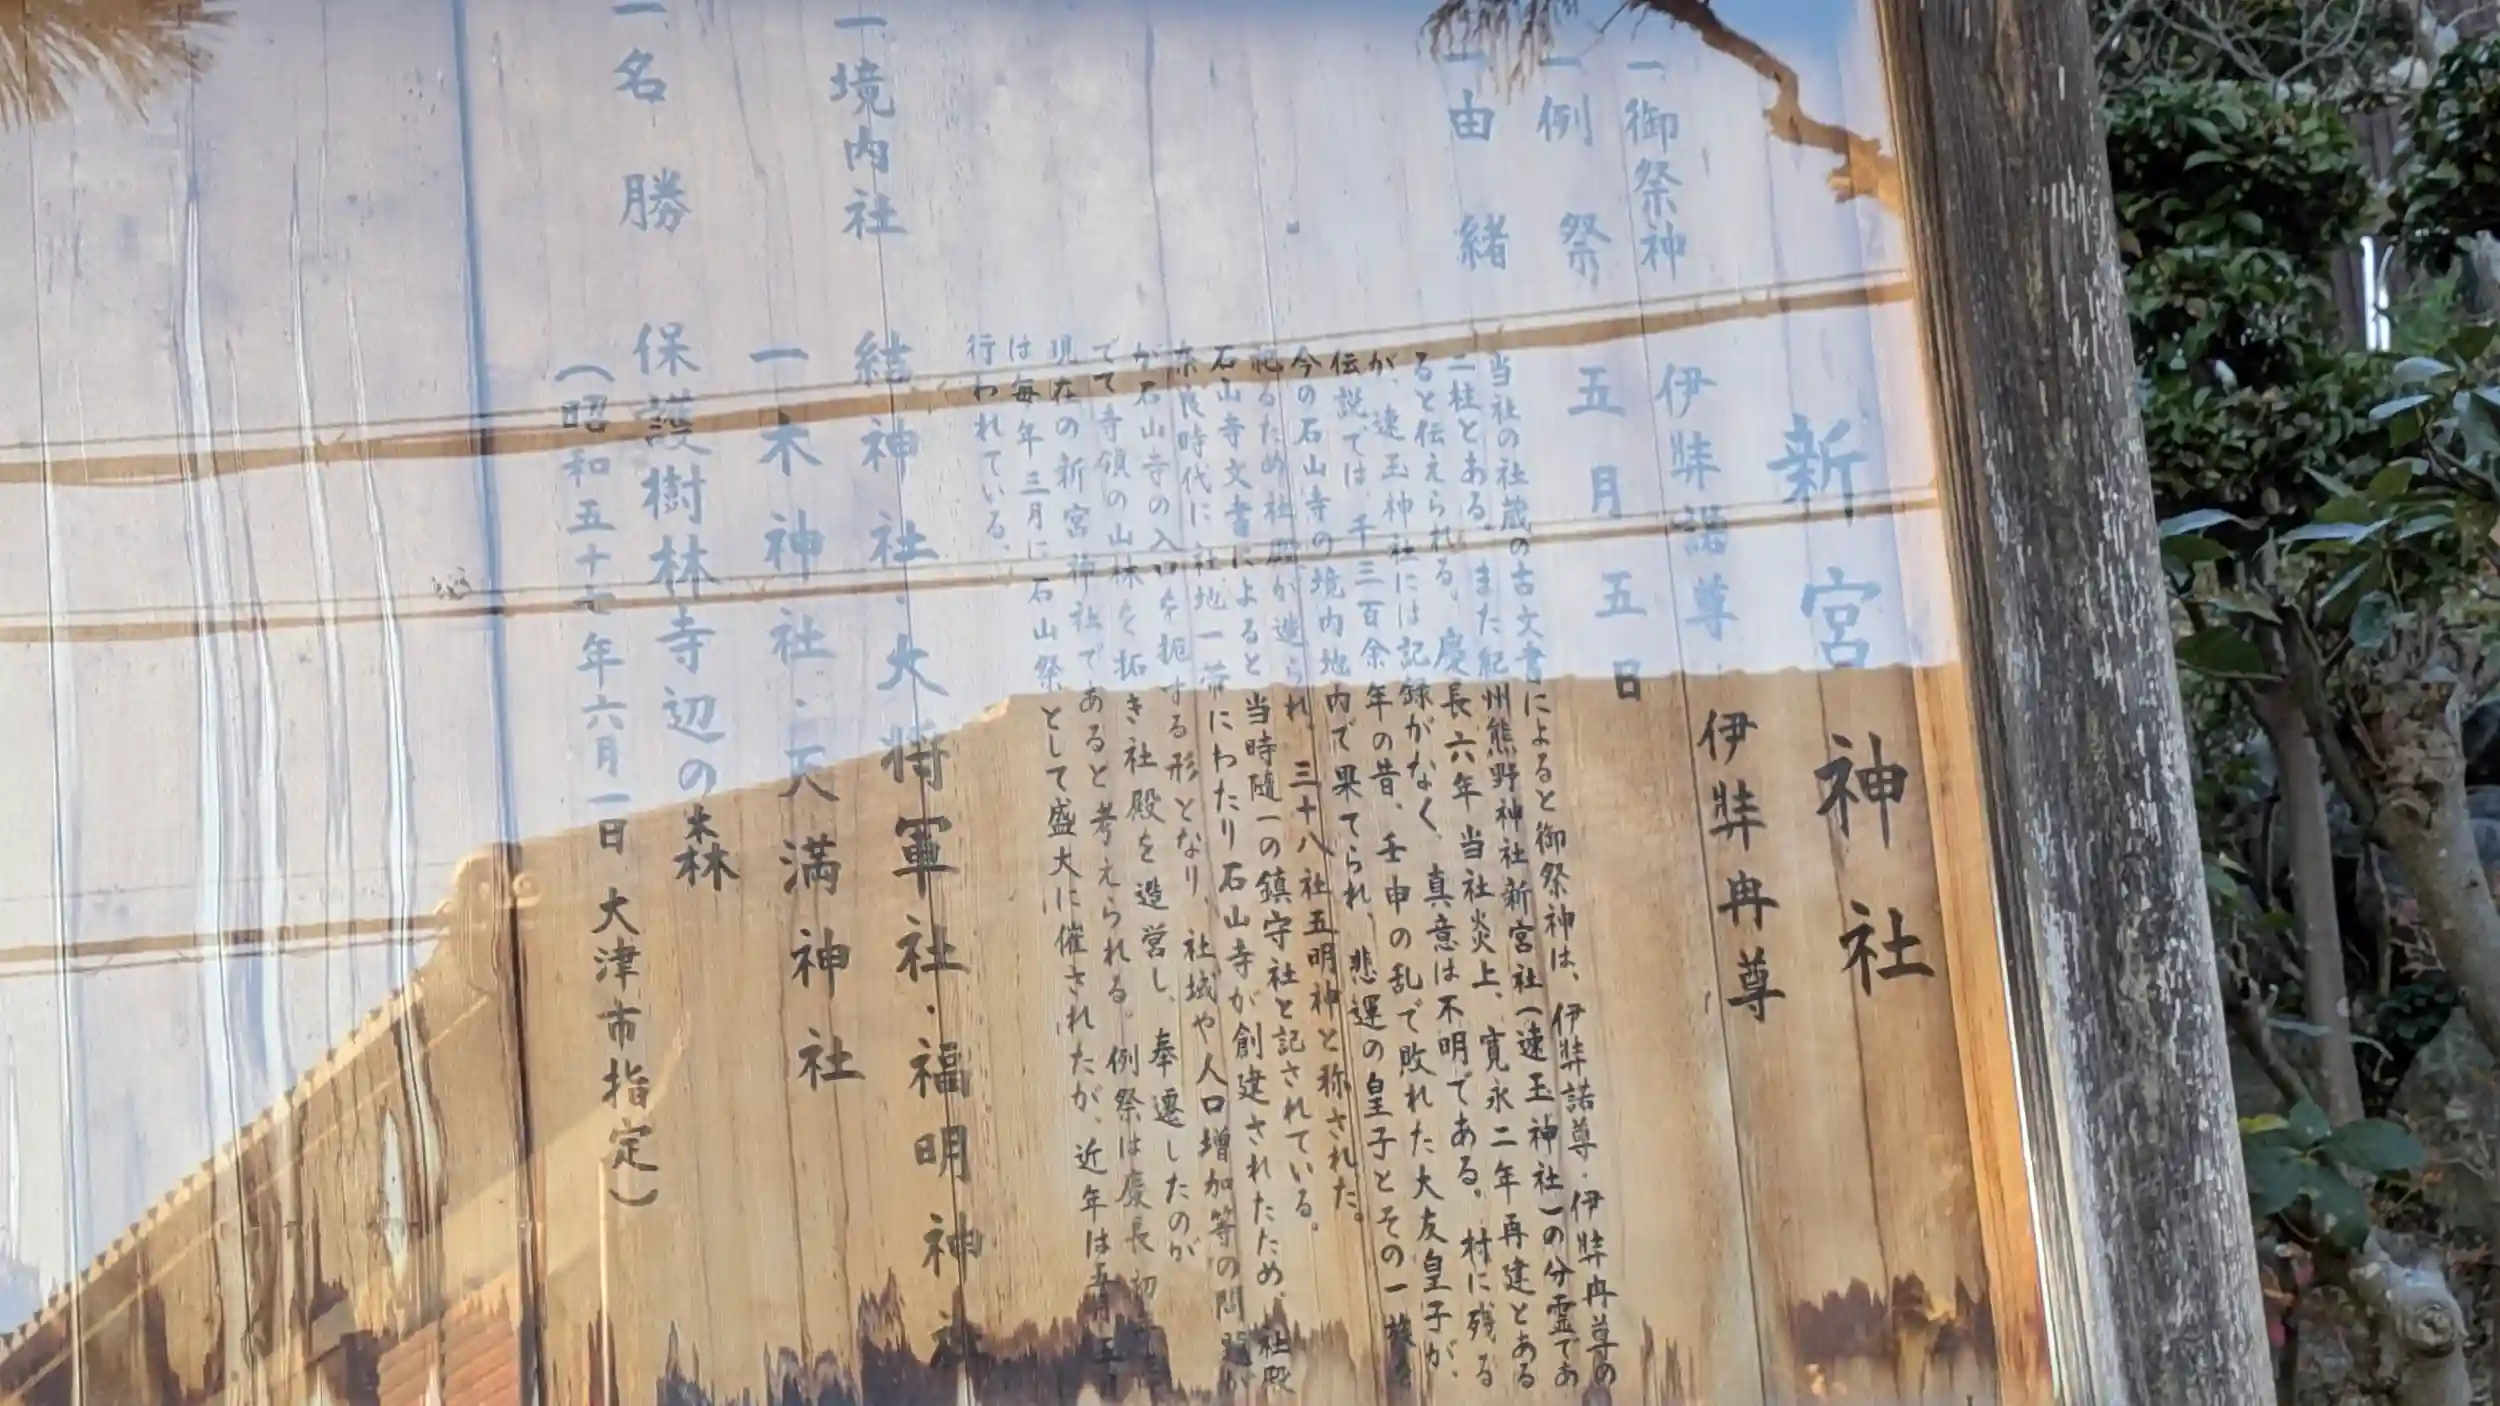 新宮神社
一御祭神 伊弉諾尊 伊弉冉尊
一例祭 五月五日
一由緒
当社の社蔵の古文書によると御祭神は、伊弉諾尊・伊弉冉尊の
二柱とある。また紀州熊野神社新宮社(速玉神社)の分霊であ
ると伝えられる。慶長六年当社炎上、寛永二年再建とある
が、速玉神社には記録がなく、真意は不明である。村に残る
伝説では、千三百余年の昔、壬申の乱で敗れた大友皇子が、
今の石山寺の境内地内で果てられ、悲運の皇子とその一族を
祀るため社殿が造られ、三十八社五明神と称された。
石山寺文書によると当時随一の鎮守社と記されている。
奈良時代に、社地一帯にわたり石山寺が創建されたため、社殿
が石山寺の入口を扼する形となり、社域や人口増加等の問題が
でて寺領の山林を拓き社殿を造営し、奉遷したのが
現在の新宮神社であると考えられる。例祭は慶長初
は毎年三月に石山祭として盛大に催されたが、近年は五月五
行われている。
一境内社 結神社・大将軍社・福明神社
一木神社・天満神社
一名勝 保護樹林寺辺の森
(昭和五十七年六月一日 大津市指定)